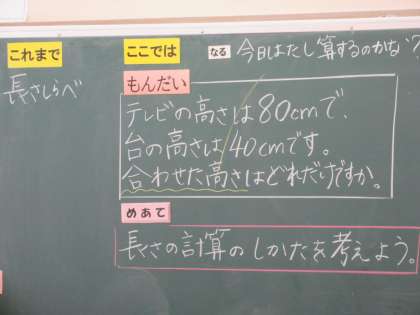 これまで
長さしらべ
ここでは
なる 今日はたし算するのかな?
もんだい
テレビの高さは80cmで、
台の高さは40cmです。
合わせた高さはどれだけですか。
めあて
長さの計算のしかたを考えよう。